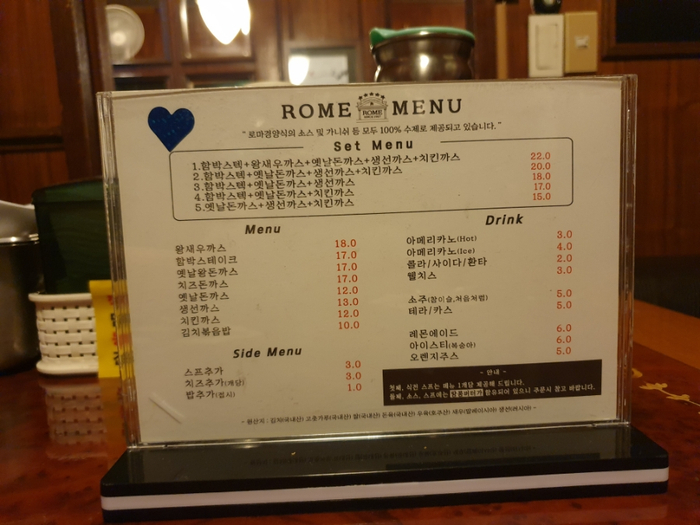 ROME ROME MENU
" 로마경양식의 소스 및 가니쉬 등 모두 100% 수제로 제공되고 있습니다. "
Set Menu
1.함박스텍+왕새우까스+옛날돈까스+생선까스+치킨까스 22.0
2.함박스텍+옛날돈까스+생선까스+치킨까스 20.0
3.함박스텍+옛날돈까스+생선까스 18.0
4.함박스텍+옛날돈까스+치킨까스 17.0
5.옛날돈까스+생선까스+치킨까스 15.0
Menu
왕새우까스 18.0
함박스테이크 17.0
옛날왕돈까스 17.0
치즈돈까스 17.0
옛날돈까스 12.0
생선까스 13.0
치킨까스 12.0
김치볶음밥 10.0
Side Menu
스프추가 3.0
치즈추가(개당) 3.0
밥추가(접시) 1.0
Drink
아메리카노(Hot) 3.0
아메리카노(Ice) 4.0
콜라/사이다/환타 2.0
웰치스 3.0
소주(참이슬,처음처럼) 5.0
테라/카스 5.0
레몬에이드 6.0
아이스티(복숭아) 6.0
오렌지주스 5.0
~ 안내 ~
첫째, 식전 스프는 메뉴 1개당 제공해 드립니다.
둘째, 소스, 스프에는 땅콩버터가 함유되어 있으니 주문시 참고 바랍니다.
~ 원산지 : 김치(국내산) 고춧가루(국내산) 쌀(국내산) 돈육(국내산) 우육(호주산) 새우(말레이시아) 생선(러시아) ~